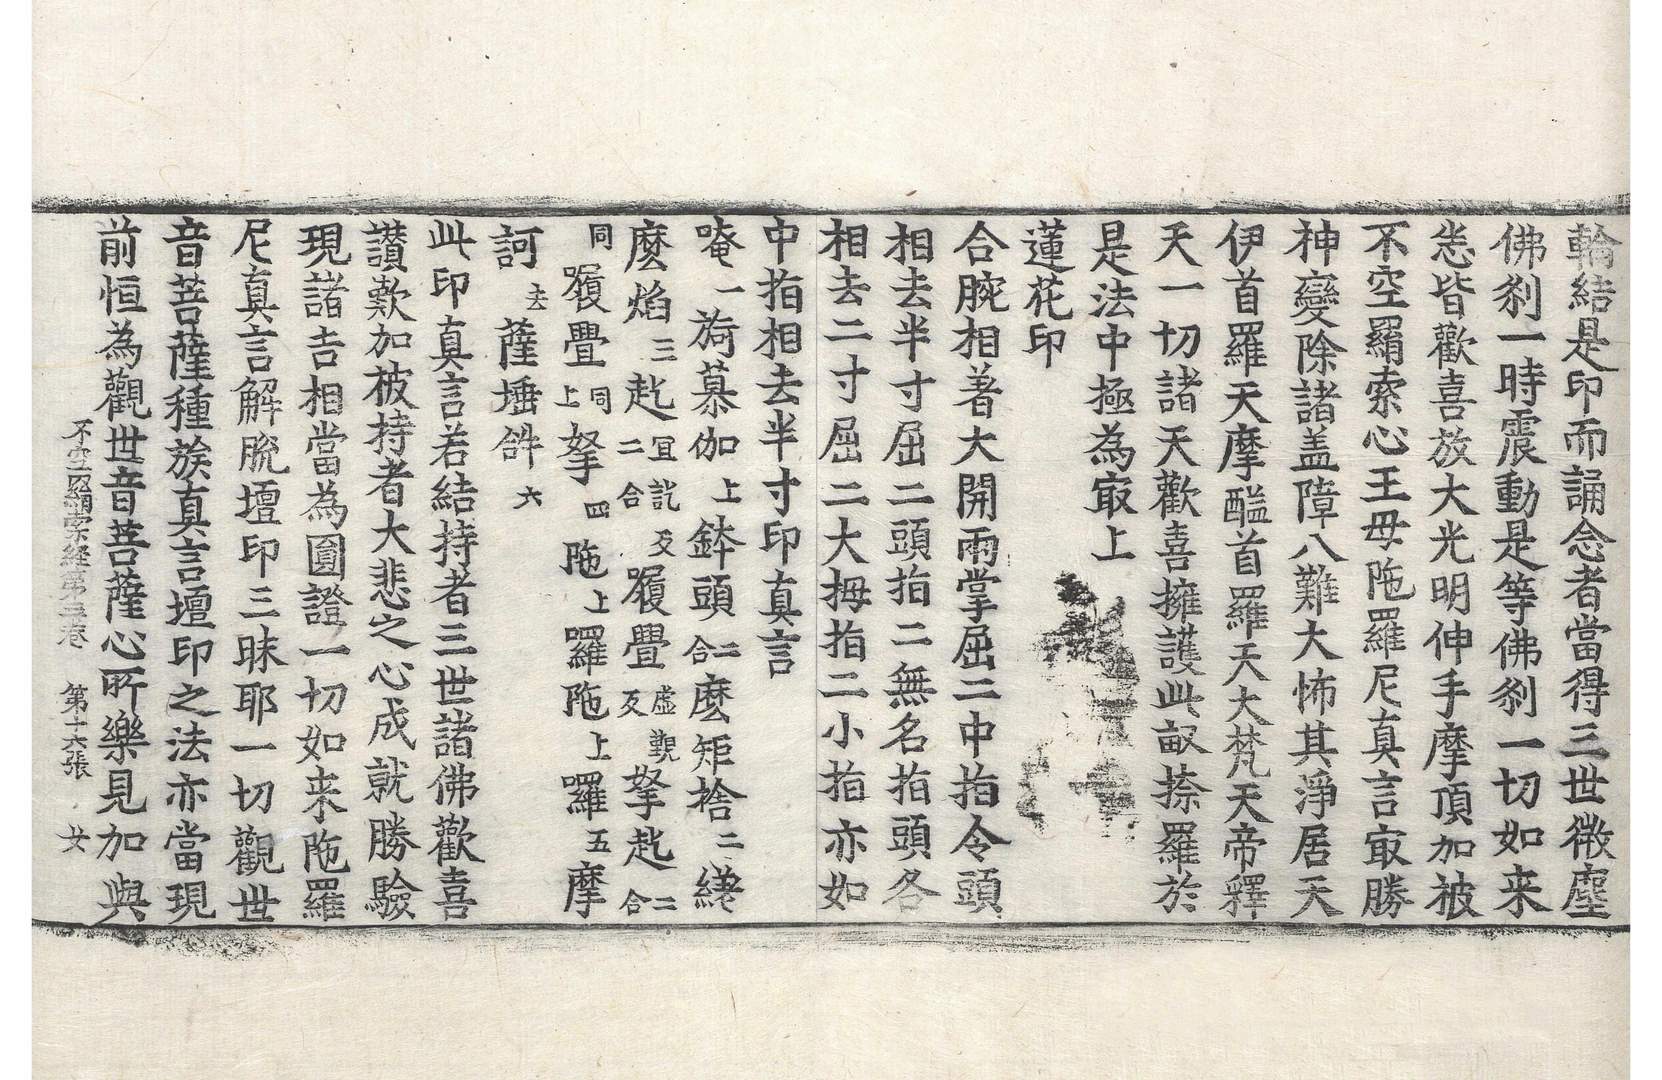 輪結是印而誦念者當得三世微塵
佛刹一時震動是等佛刹一切如来
悉皆歡喜放大光明伸手摩頂加被
不空羂索心王母陁羅尼真言㝡勝
神變除諸盖障八難大怖其淨居天
伊首羅天摩醯首羅天大梵天帝釋
天一切諸天歡喜擁護此㝡捺羅於
是法中極為㝡上
蓮花印
合腕相著大開兩掌屈二中指令頭
相去半寸屈二頭指二無名指頭各
相去二寸屈二大拇指二小指亦如
中指相去半寸印真言
唵一旖慕伽上鉢頭二合麼矩捨二縒
麼焰三訖宜訖反二合履疊虛觀反拏訖二合
同履疊同上拏四陁上囉陁上囉五摩
訶去薩埵絆六
此印真言若結持者三世諸佛歡喜
讚歎加被持者大悲之心成就勝驗
現諸吉相當為圓證一切如来陁羅
尼真言解脫壇印三昧耶一切觀世
音菩薩種族真言壇印之法亦當現
前恒為觀世音菩薩心所樂見加與
不空羂索経第三卷 第十六張 廿